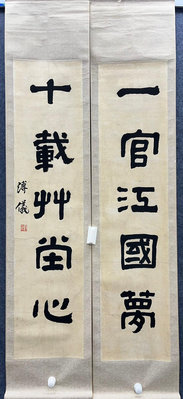 一官江國夢
十載艸堂心
溥儀